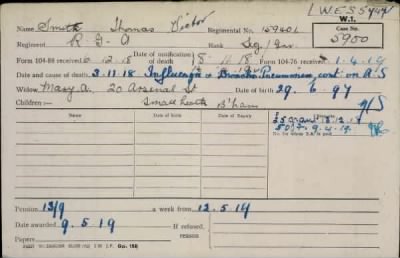 1.W.E.S 5
W.I.
Name Smith Thomas Victor Regimental No. 159401
Case No. 5900
Regiment R G A Rank Sig/Gnr.
Date of notification of death 18.11.18
Form 104-88 received 6.12.18 Form 104-76 received 1.4.19
Date and cause of death 3.11.18 Influenza & Broncho Pneumonia cont. on A/S
Widow Mary A. 20 Arsenal St Date of birth 29.6.97
Children:— Small heath B'ham N/S
Date of Birth Date of Expiry
£5 grant 18.12.18
9.4.19.
Pension 13/9 a week from 12.5.19
Date awarded 9.5.19 If refused, reason
Papers
Gp. 156